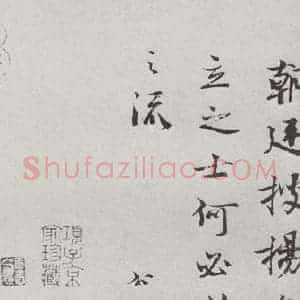 朝廷拔揚
立之士何必
之流
項子京家珍藏
Shufaziliao.COM